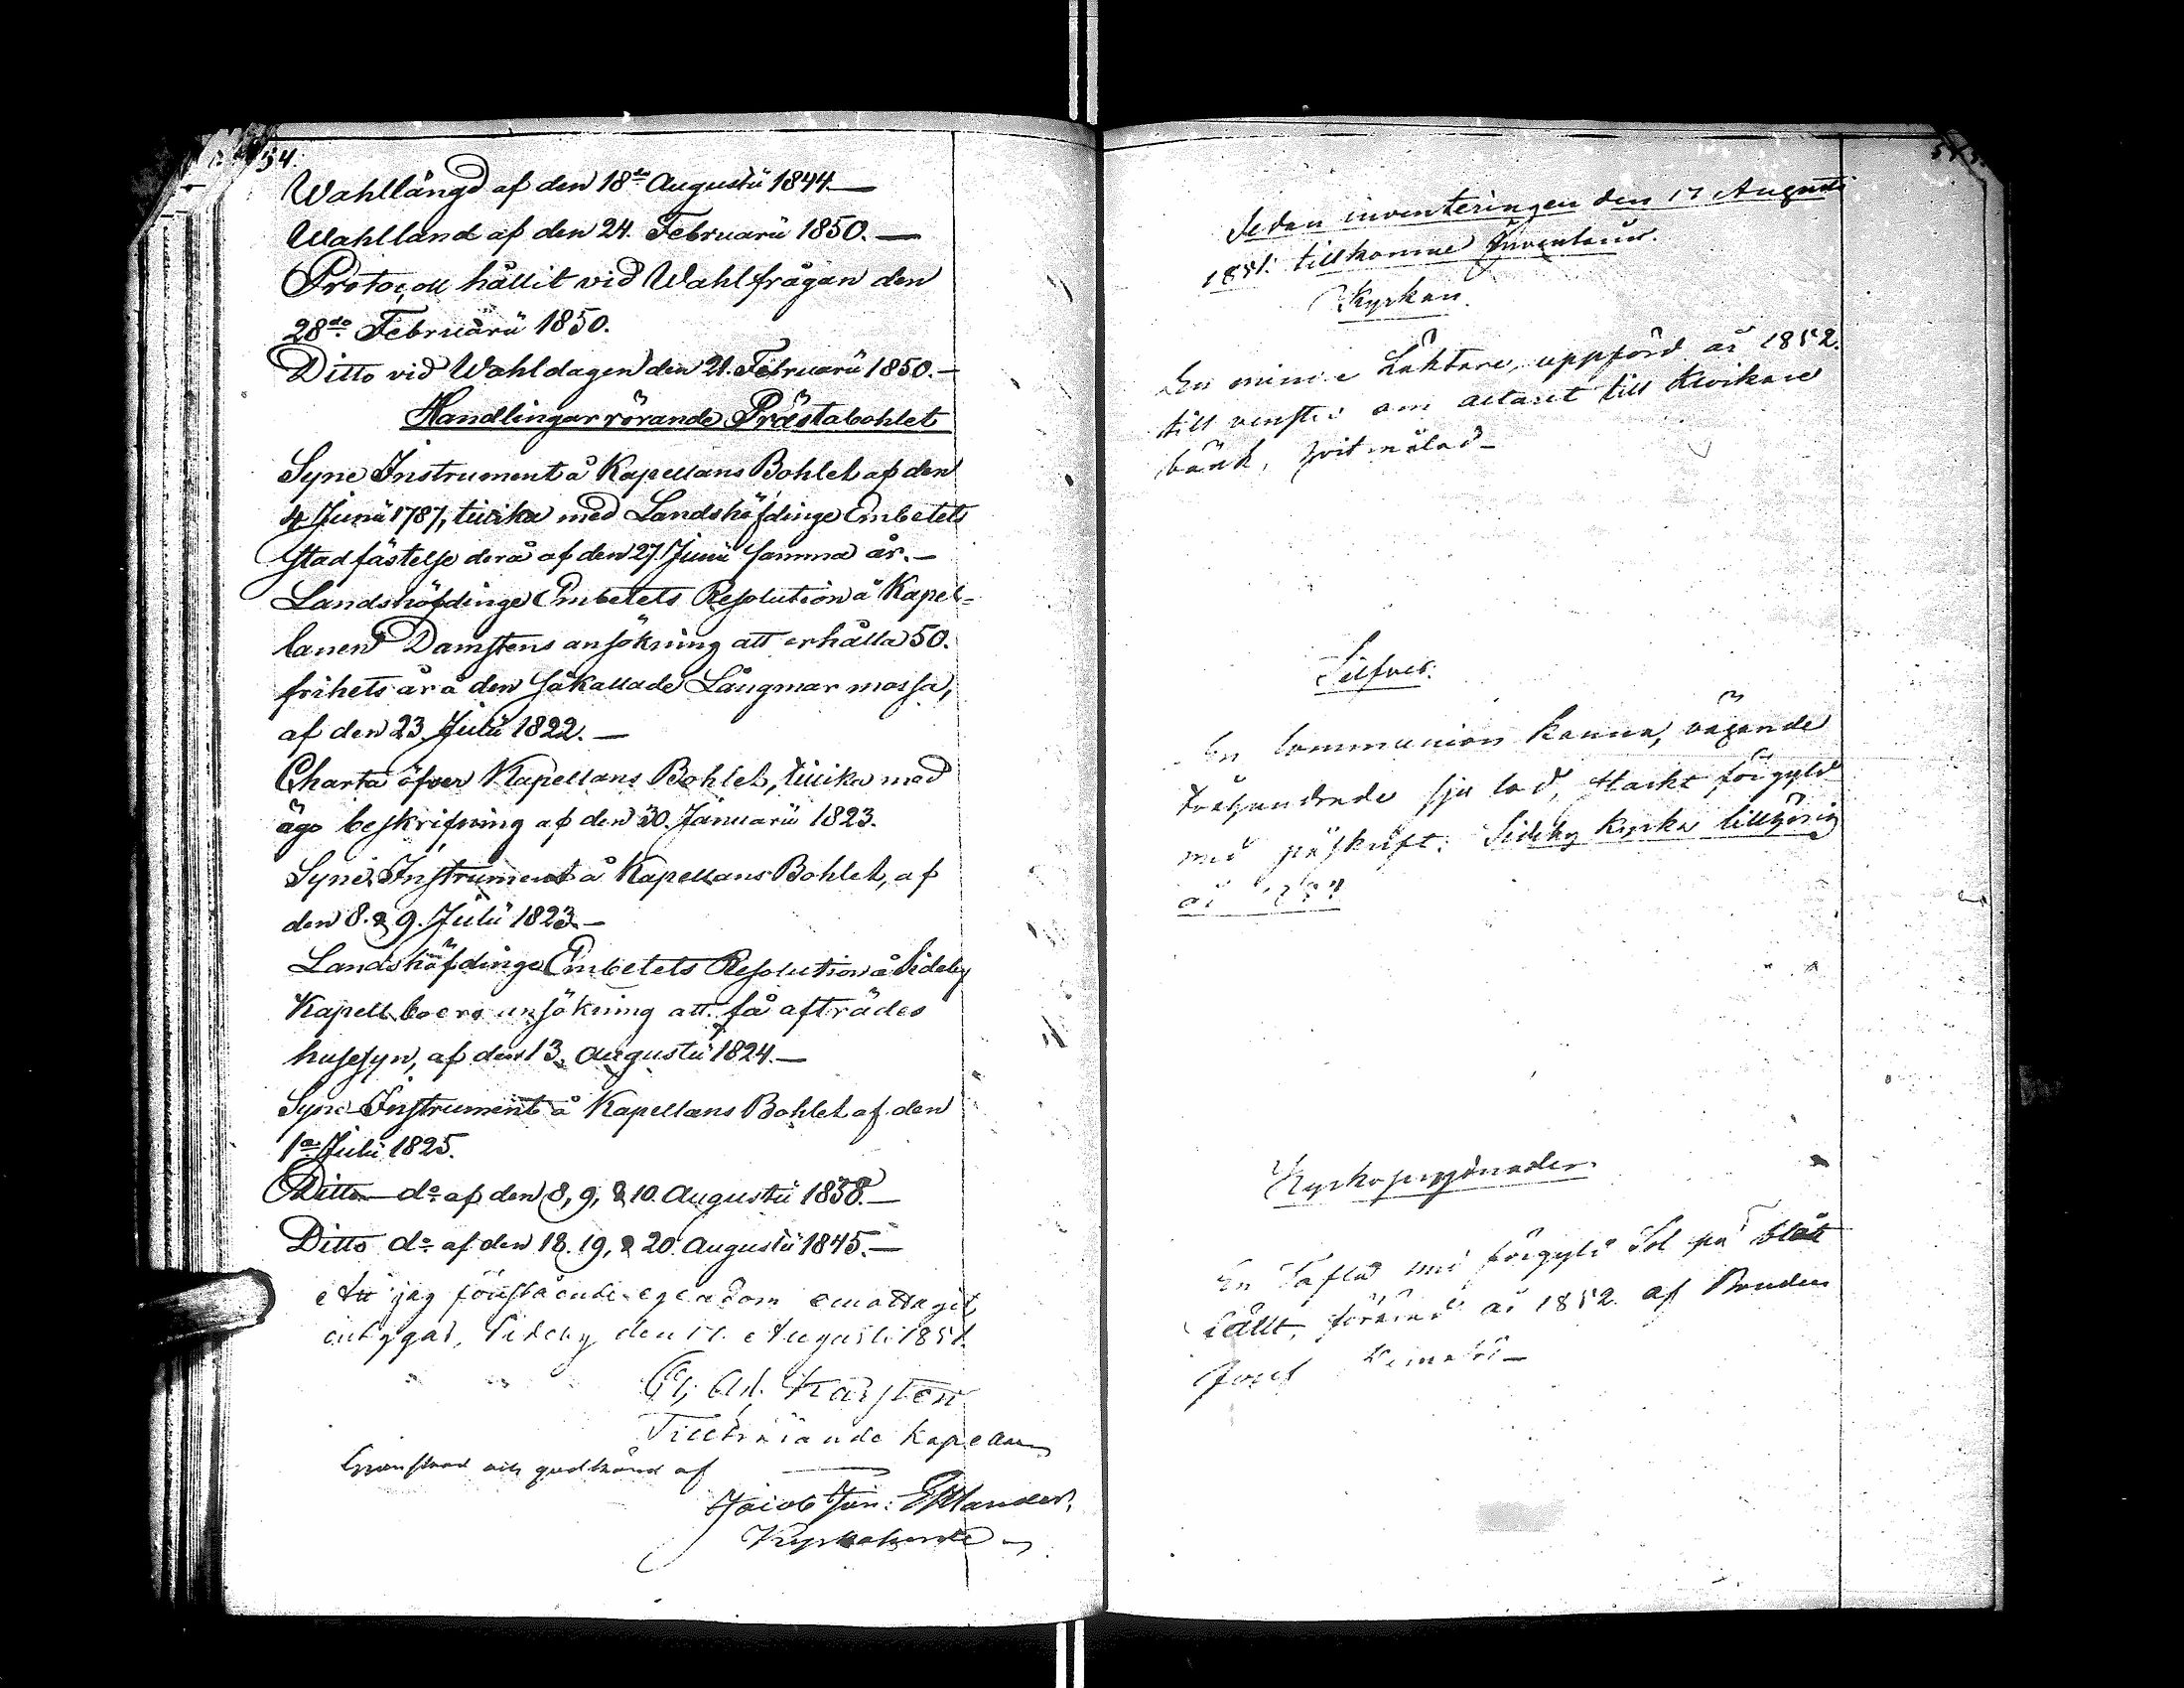 54.
Wahllängd af den 18de Augustii 1844.—
Wahlland af den 24. Februarii 1850.—
Protocoll hållit vid Wahlfrågan den
28de Februarii 1850.
Ditto vid Wahldagen den 21. Februarii 1850.—
Handlingar rörande Prästabohlet
Syne Instrument å Kapellans Bohlet af den
4 Junii 1787, tillika med Landshöfdinge Embetets
Stadfästelse derå af den 27. Junii samma år.—
Landshöfdinge Embetets Resolution å Kapel-
lanen Damstens ansökning att erhålla 50.
frihets år å den så kallade Långmar mossa,
af den 23. Julii 1822.—
Charta öfver Kapellans Bohlet, tillika med
ägo beskrifning af den 30. Januarii 1823.
Syne Instrument å Kapellans Bohlet, af
den 8. & 9. Julii 1823.—
Landshöfdinge Embetets Resolution å Sideby
Kapellboers ansökning att få afträdes
husesyn, af den 13. Augustii 1824.—
Syne Instrument å Kapellans Bohlet af den
1a Julii 1825.
Ditto do af den 8, 9, & 10. Augustii 1838.—
Ditto do af den 18. 19, & 20. Augustii 1845.—
Att jag förestående egendom emottagit
intygar, Sideby den 17. Augusti 1851.
Karsten
Tillträdande Kapellan
Granskad och godkänd af
Jacob Jon: Estlander,
Kyrkoherde
Sedan inventeringen den 17 Augusti
1851. tillkomne Inventarier.
Kyrkan.
En mindre Läktare, uppförd år 1852.
till venster om altaret till
bänk, hvitmålad—
Silfver.
En Communion kanna, vägande
tvåhundrade sju lod, starkt förgyld
med påskrift: Sideby kyrka tillhörig
år
Kyrkoprydnader.
En Tafla med förgyld Sol på blått
fällt, förärad år 1852 af Bonden
Josef